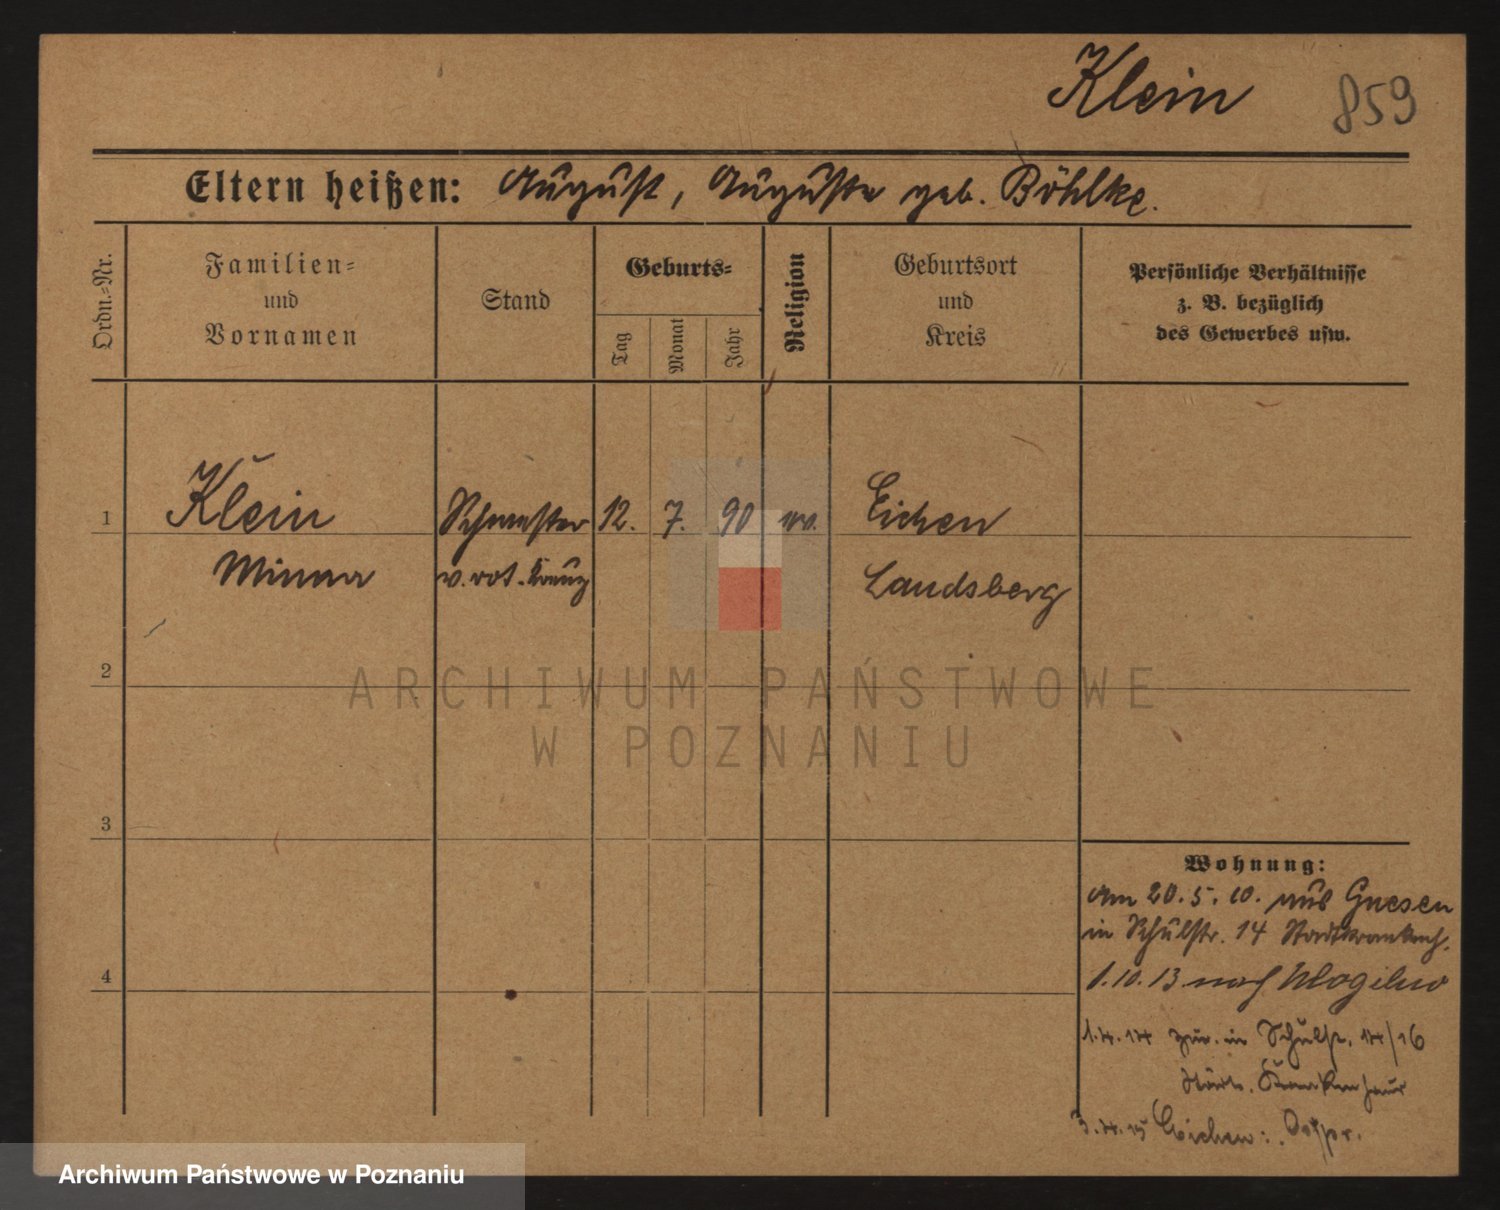 Klein 859
Eltern heißen: August, Auguste geb. Böhlke.
Ordn.=Nr.
Familien=
und
Vornamen
Stand
Geburts=
Tag
Monat
Jahr
Religion
Geburtsort
und
Kreis
Persönliche Verhältnisse
z. B. bezüglich
des Gewerbes usw.
1 Klein Schwester 12. 7. 90 ev. Eichen
Minna v. rot. Kreuz Landsberg
2
ARCHIWUM PAŃSTWOWE
W POZNANIU
3
Wohnung:
Am 20.5.10. aus Gnesen
in Schulstr. 14 Stadtkrankenh.
4
1.10.13 nach Mogilno
1.4.14 zur. in Schulstr. 14/16
Städt. Krankenhaus
3.4.15 Eichen: Ostpr.
Archiwum Państwowe w Poznaniu